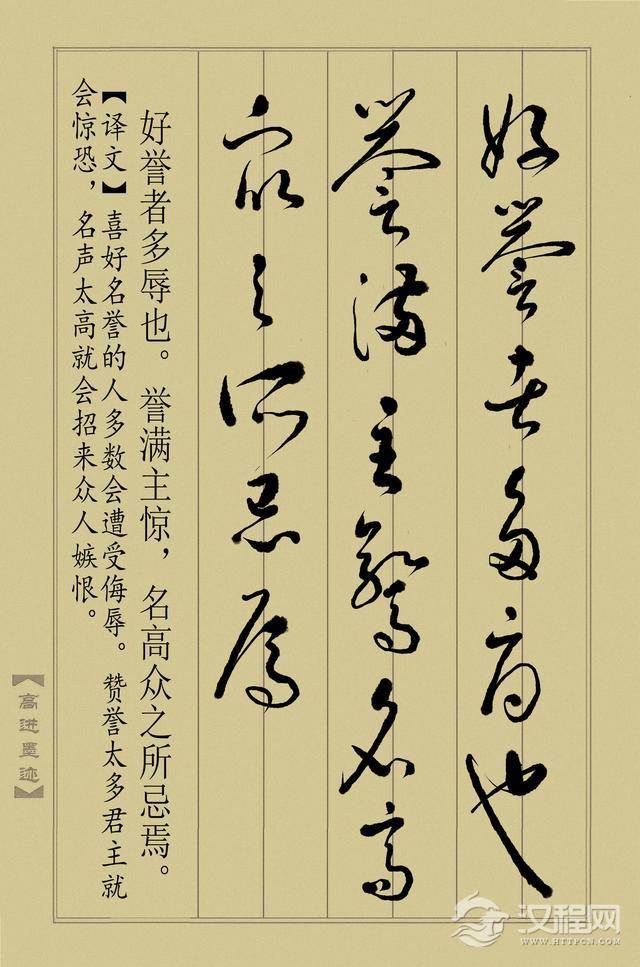 好誉者多辱也
誉满主惊名高
众之所忌焉
好誉者多辱也。誉满主惊，名高众之所忌焉。
【译文】喜好名誉的人多数会遭受侮辱。赞誉太多君主就
会惊恐，名声太高就会招来众人嫉恨。
【高进墨迹】
汉程网
WWW.HTTPCN.COM